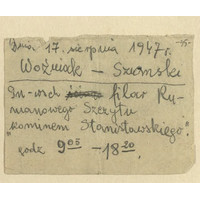 Dnia 17. sierpnia 1947 r.
75
Woźniak – Szumski
Pn-wsch filar Ry-
manowego Szczytu
"kominem Stanisławskiego".
godz 9⁰⁵ – 18²⁰.